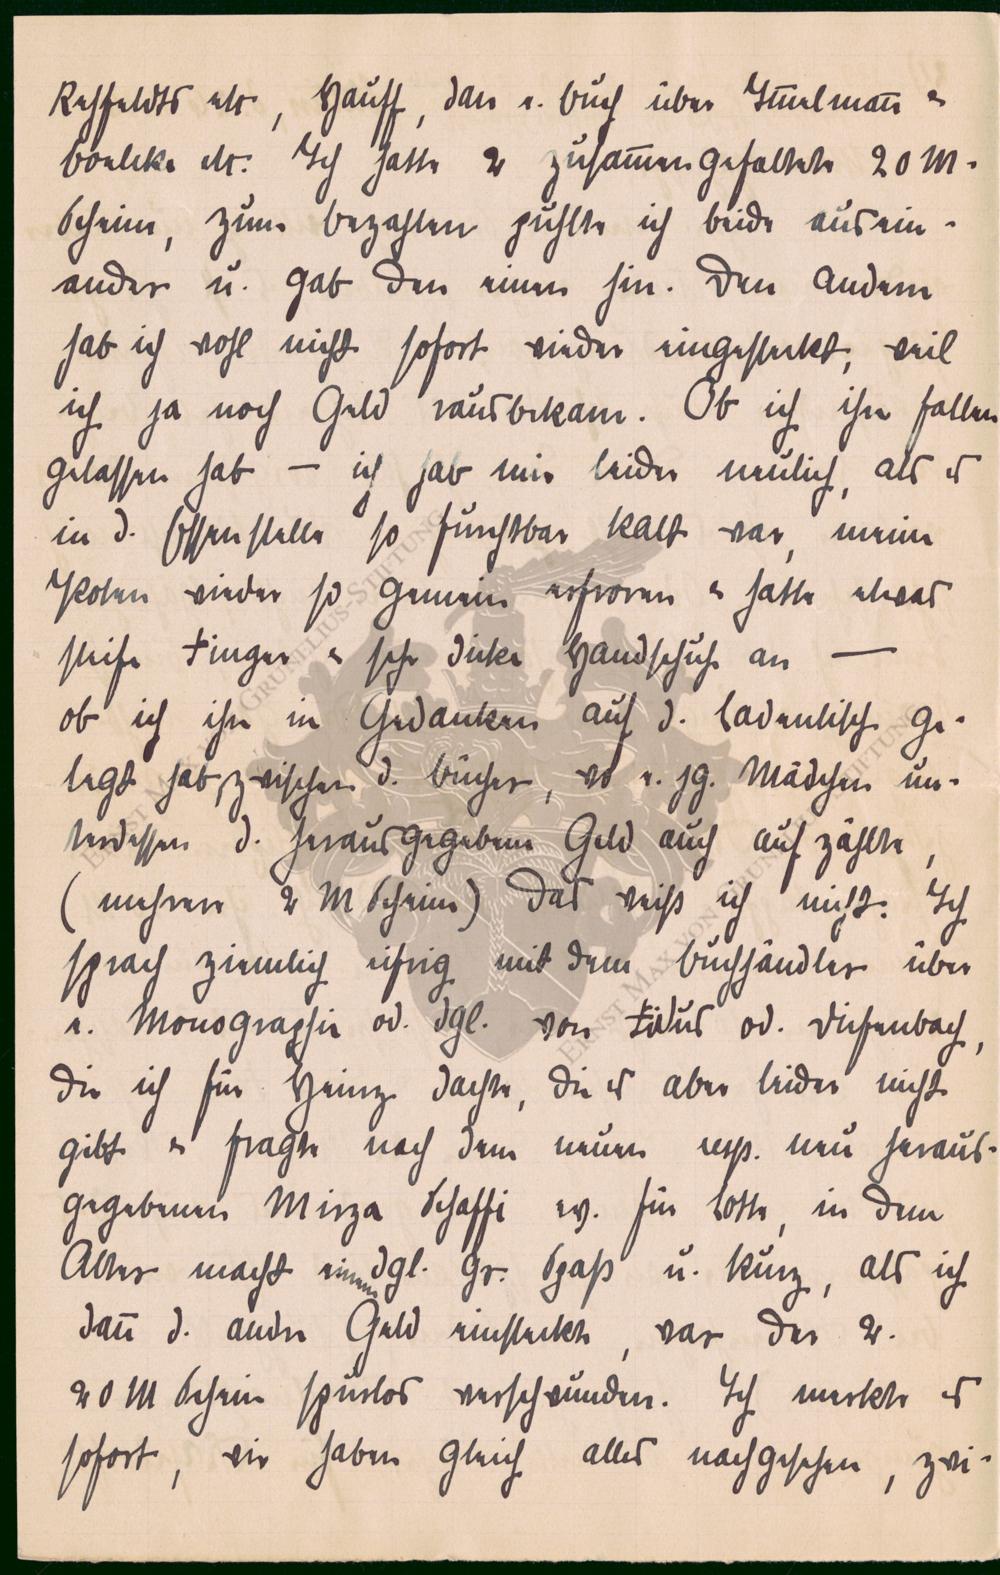 Rehfeldts etc, Hauff, dan e. Buch über Immelmann &
Boelcke etc. Ich hatte 2 zusammengefaltete 20 M-
Scheine, zum bezahlen puhlte ich beide ausein-
ander u. gab den einen hin. Den andern
hab ich wohl nicht sofort wieder eingesteckt, weil
ich ja noch Geld rausbekam. Ob ich ihn fallen
gelassen hab — ich hab mir leider neulich, als es
in d. Essenstelle so furchtbar kalt war, meine
Pfoten wieder so gemein erfroren & hatte etwas
steife Finger & sehr dicke Handschuh an —
ob ich ihn in Gedanken auf d. Ladentisch ge-
legt hab, zwischen d. Bücher, wo e. jg. Mädchen un-
terdessen d. herausgegebene Geld auch aufzählte,
(mehrere 2 M Scheine) das weiß ich nicht. Ich
sprach ziemlich eifrig mit dem Buchhändler über
e. Monographie od. dgl. von Fidus od. Diefenbach,
die ich für Heinz dachte, die es aber leider nicht
gibt & fragte nach dem neuen resp. neu heraus-
gegebenen Mirza Schaffi ev. für Lotte, in dem
Alter macht einem dgl. gr. Spaß u. kurz, als ich
dann d. andre Geld einsteckte, war der 2.
20 M Schein spurlos verschwunden. Ich merkte es
sofort, wir haben gleich alles nachgesehen, zwi-
ERNST MAX VON GRUNELIUS-STIFTUNG
ERNST MAX VON GRUNELIUS-STIFTUNG